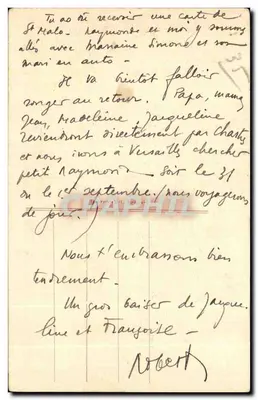 Tu as dû recevoir une carte de
St Malo - Raymonde et moi y sommes
allés avec Marraine Simone et son
mari en auto -
Il va bientôt falloir
songer au retour. Papa, maman
Jean, Madeleine, Jacqueline
reviendront directement par Chartres
et nous irons à Versailles chercher
petit Raymond - soit le 31
ou le 1er septembre. (nous voyagerons
de jour.)
Nous t'embrassons bien
tendrement.
Un gros baiser de Jacque-
line et Françoise -
Robert
CPAPHIL